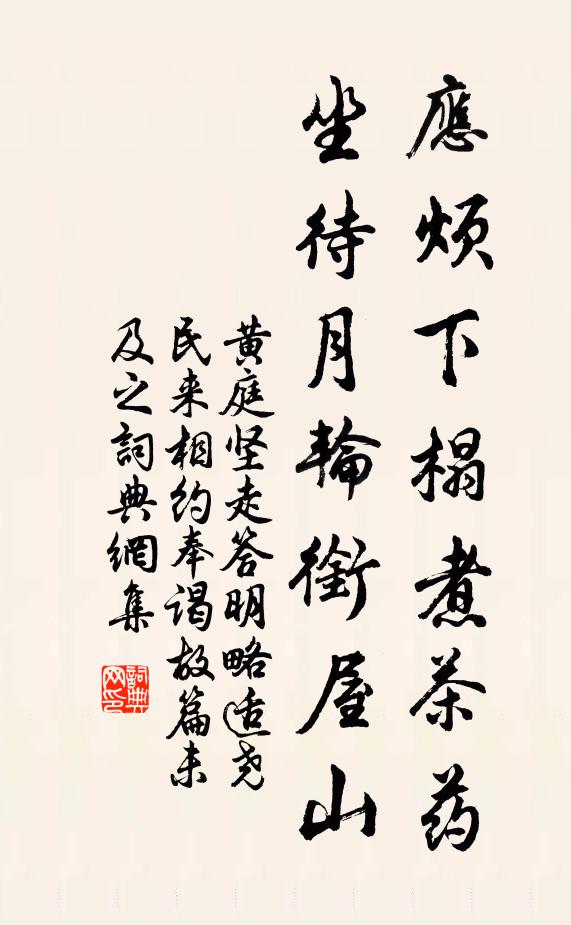 應煩下榻煮茶药
坐待月輪銜屋山
黄庭坚走答明略适尧
民来相约奉谒故篇末
及之詞典網集
詞典网印